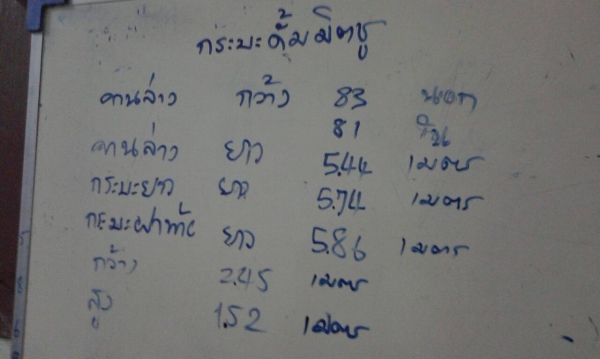 กระบะดั้มมิตซู
คานล่าง กว้าง 83 นอก
81 ใน
คานล่าง ยาว 5.44 เมตร
กระบะยาว ยาว 5.74 เมตร
กระบะฝาท้าย ยาว 5.86 เมตร
กว้าง 2.45 เมตร
สูง 1.52 เมตร